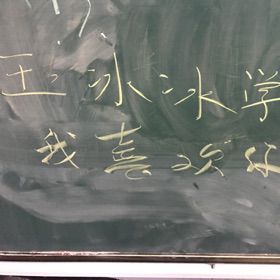 王冰冰学
我喜欢你